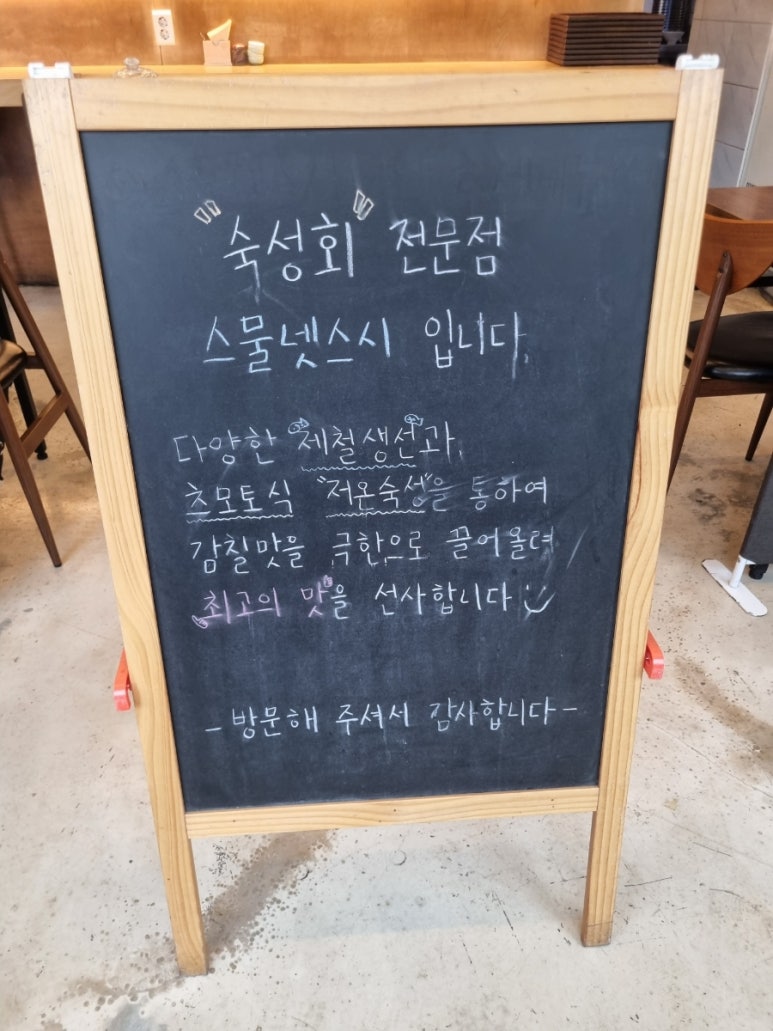 "숙성회" 전문점
스물넷스시 입니다.
다양한 제철생선과
초모토식 "저온숙성"을 통하여
감칠맛을 극한으로 끌어올려
최고의 맛을 선사합니다
- 방문해 주셔서 감사합니다 -